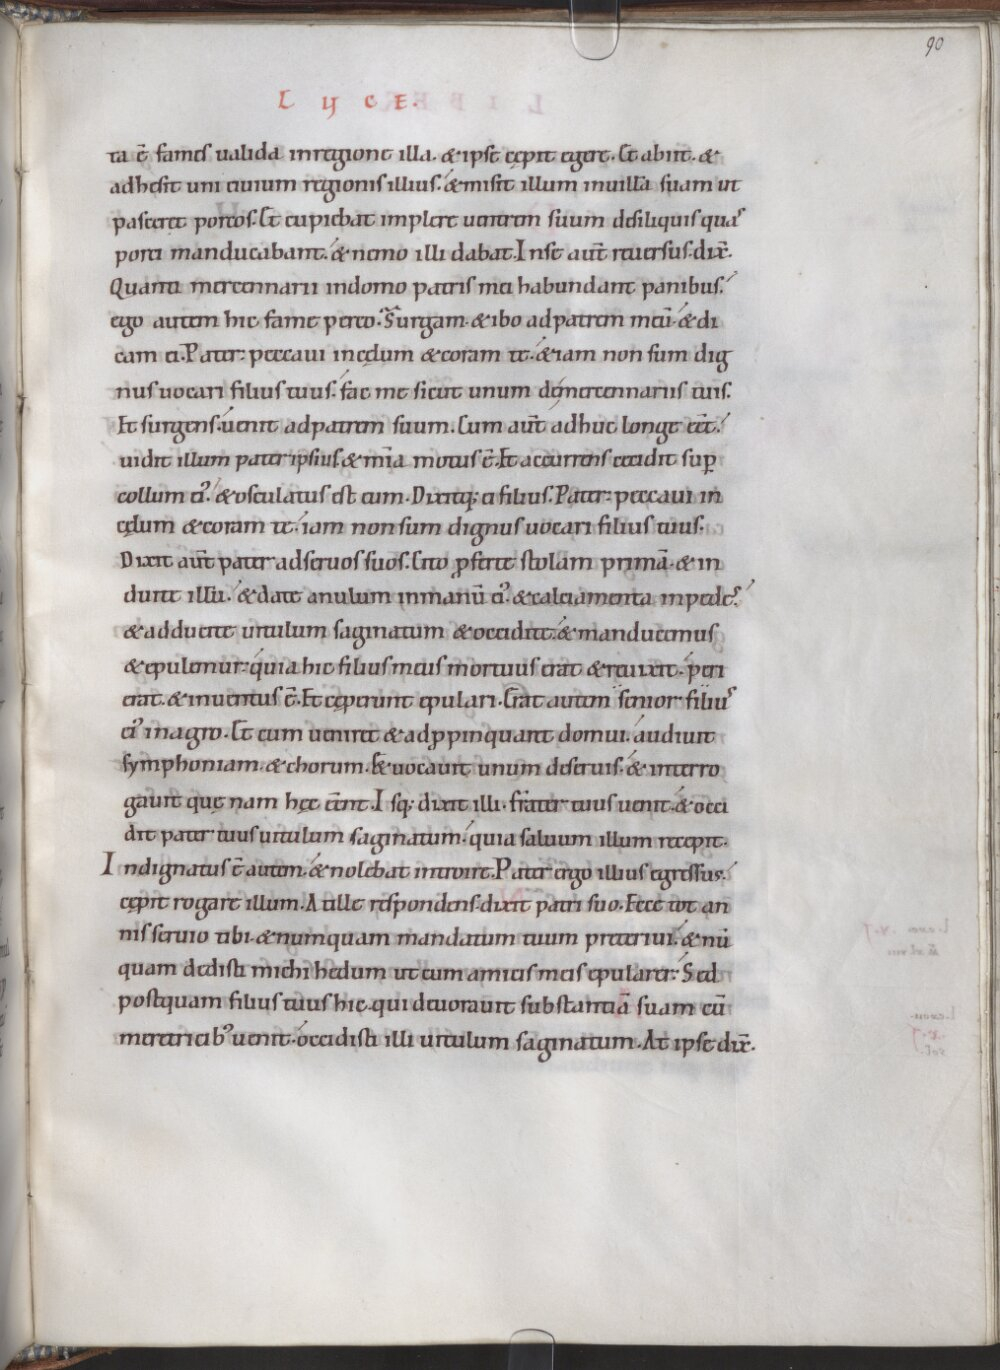 90
LYCE.
ta ē fames ualida in regione illa. & ipse cępit egere. Et abiit. &
adhesit uni ciuium regionis illius. & misit illum in uillā suam ut
pasceret porcos. Et cupiebat implere uentrem suum de siliquis quas
porci manducabant. & nemo illi dabat. In se aut̄ reuersus. dix̄.
Quanti mercennarii in domo patris mei habundant panibus.
ego autem hic fame pereo. Surgam. & ibo ad patrem meū. & di
cam ei. Pater. peccaui in cęlum & coram te. & iam non sum dig
nus uocari filius tuus. fac me sicut unum de mercennariis tuis.
Et surgens. uenit ad patrem suum. Cum aut̄ adhuc longe eēt.
uidit illum pater ipsius. & mīa motus ē. Et accurrens cecidit sup̄
collum ei᾽. & osculatus est eum. Dixitq; ei filius. Pater. peccaui in
cęlum & coram te. iam non sum dignus uocari filius tuus.
Dixit aut̄ pater ad seruos suos. Cito ꝓferte stolam primā. & in
duite illū. & date anulum in manū ei᾽. & calciamenta in pedes᾽.
& adducite uitulum saginatum & occidite. & manducemus
& epulemur. quia hic filius meus mortuus erat & reuixit. peri
erat. & inuentus ē. Et cęperunt epulari. Erat autem senior filius
ei᾽ in agro. Et cum ueniret & adꝓpinquaret domui. audiuit
symphoniam. & chorum. & uocauit unum de seruis. & interro
gauit quę nam hęc eēnt. Isq; dixit illi. frater tuus uenit. & occi
dit pater tuus uitulum saginatum. quia saluum illum recepit.
Indignatus ē autem. & nolebat introire. Pater ergo illius egressus.
cępit rogare illum. At ille respondens. dixit patri suo. Ecce tot an
nis seruio tibi. & numquam mandatum tuum preteriui. & nū
quam dedisti michi hedum ut cum amicis meis epularer. Sed
postquam filius tuus hic. qui deuorauit substantiā suam cū
meretricib᾽ uenit. occidisti illi uitulum saginatum. At ipse dix̄.